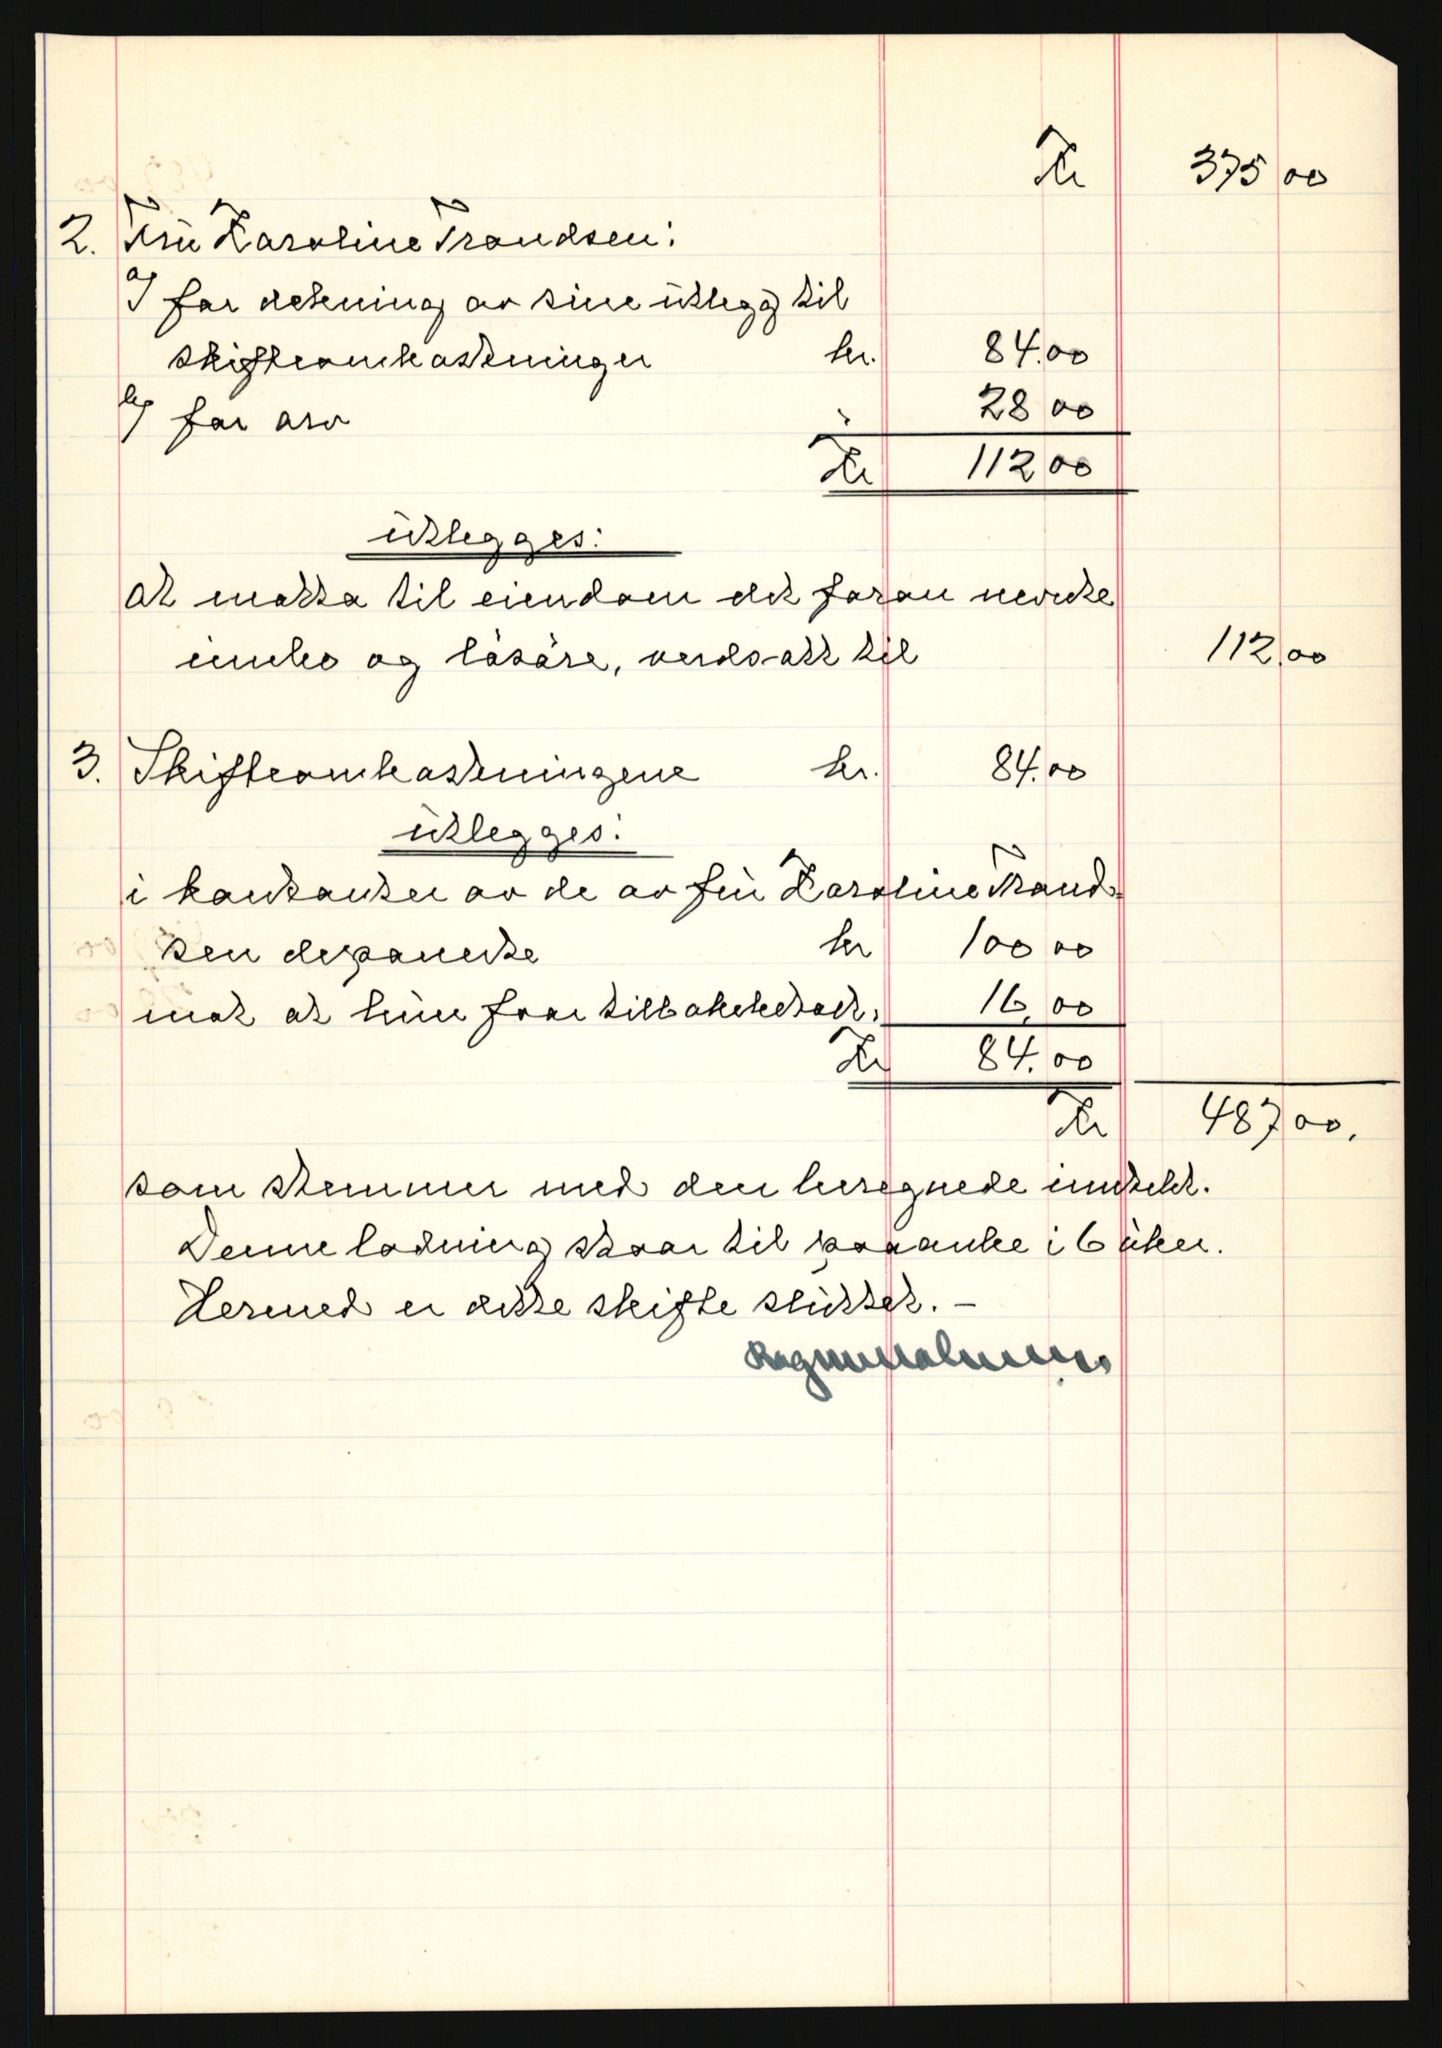 Kr 375 00
2. Fru Karoline Trondsen:
a) for dekning av sine utlegg til
skifteomkostninger kr. 84.00
b) for arv " 28 00
Kr 112 00
utlegges:
at motta til eiendom det foran nevnte
innbo og løsøre, verdsatt til 112,00
3. Skifteomkostningene kr. 84.00
utlegges:
i kontanter av de av fru Karoline Trond-
sen deponerte kr 100 00
mot at hun faar tilbakebetalt, 16,00
Kr 84.00
Kr 487 00.
som stemmer med den beregnede inntekt.
Denne lodning staar til paaanke i 6 uker.
Hermed er dette skifte sluttet. –